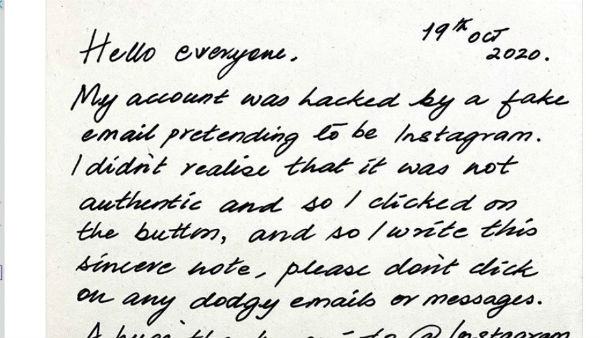 19th OCT
2020.
Hello everyone,
My account was hacked by a fake
email pretending to be Instagram.
I didn't realise that it was not
authentic and so I clicked on
the button, and so I write this
sincere note, please don't click
on any dodgy emails or messages.
A huge to @Instagram